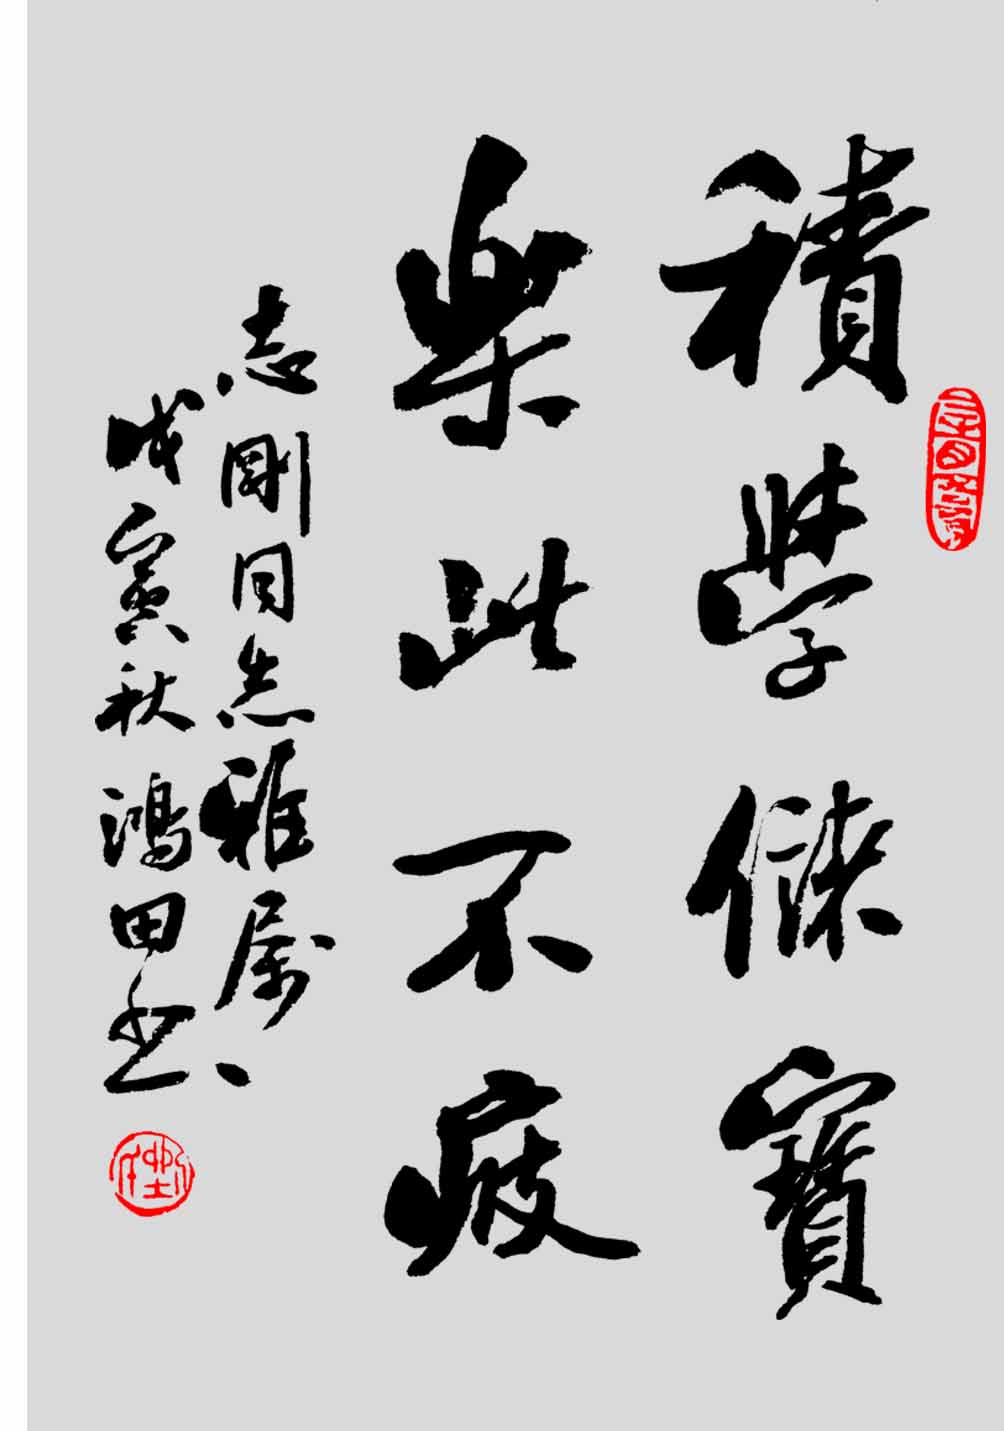 積學儲寶
樂此不疲
志剛同志雅属
戊寅秋鴻田书